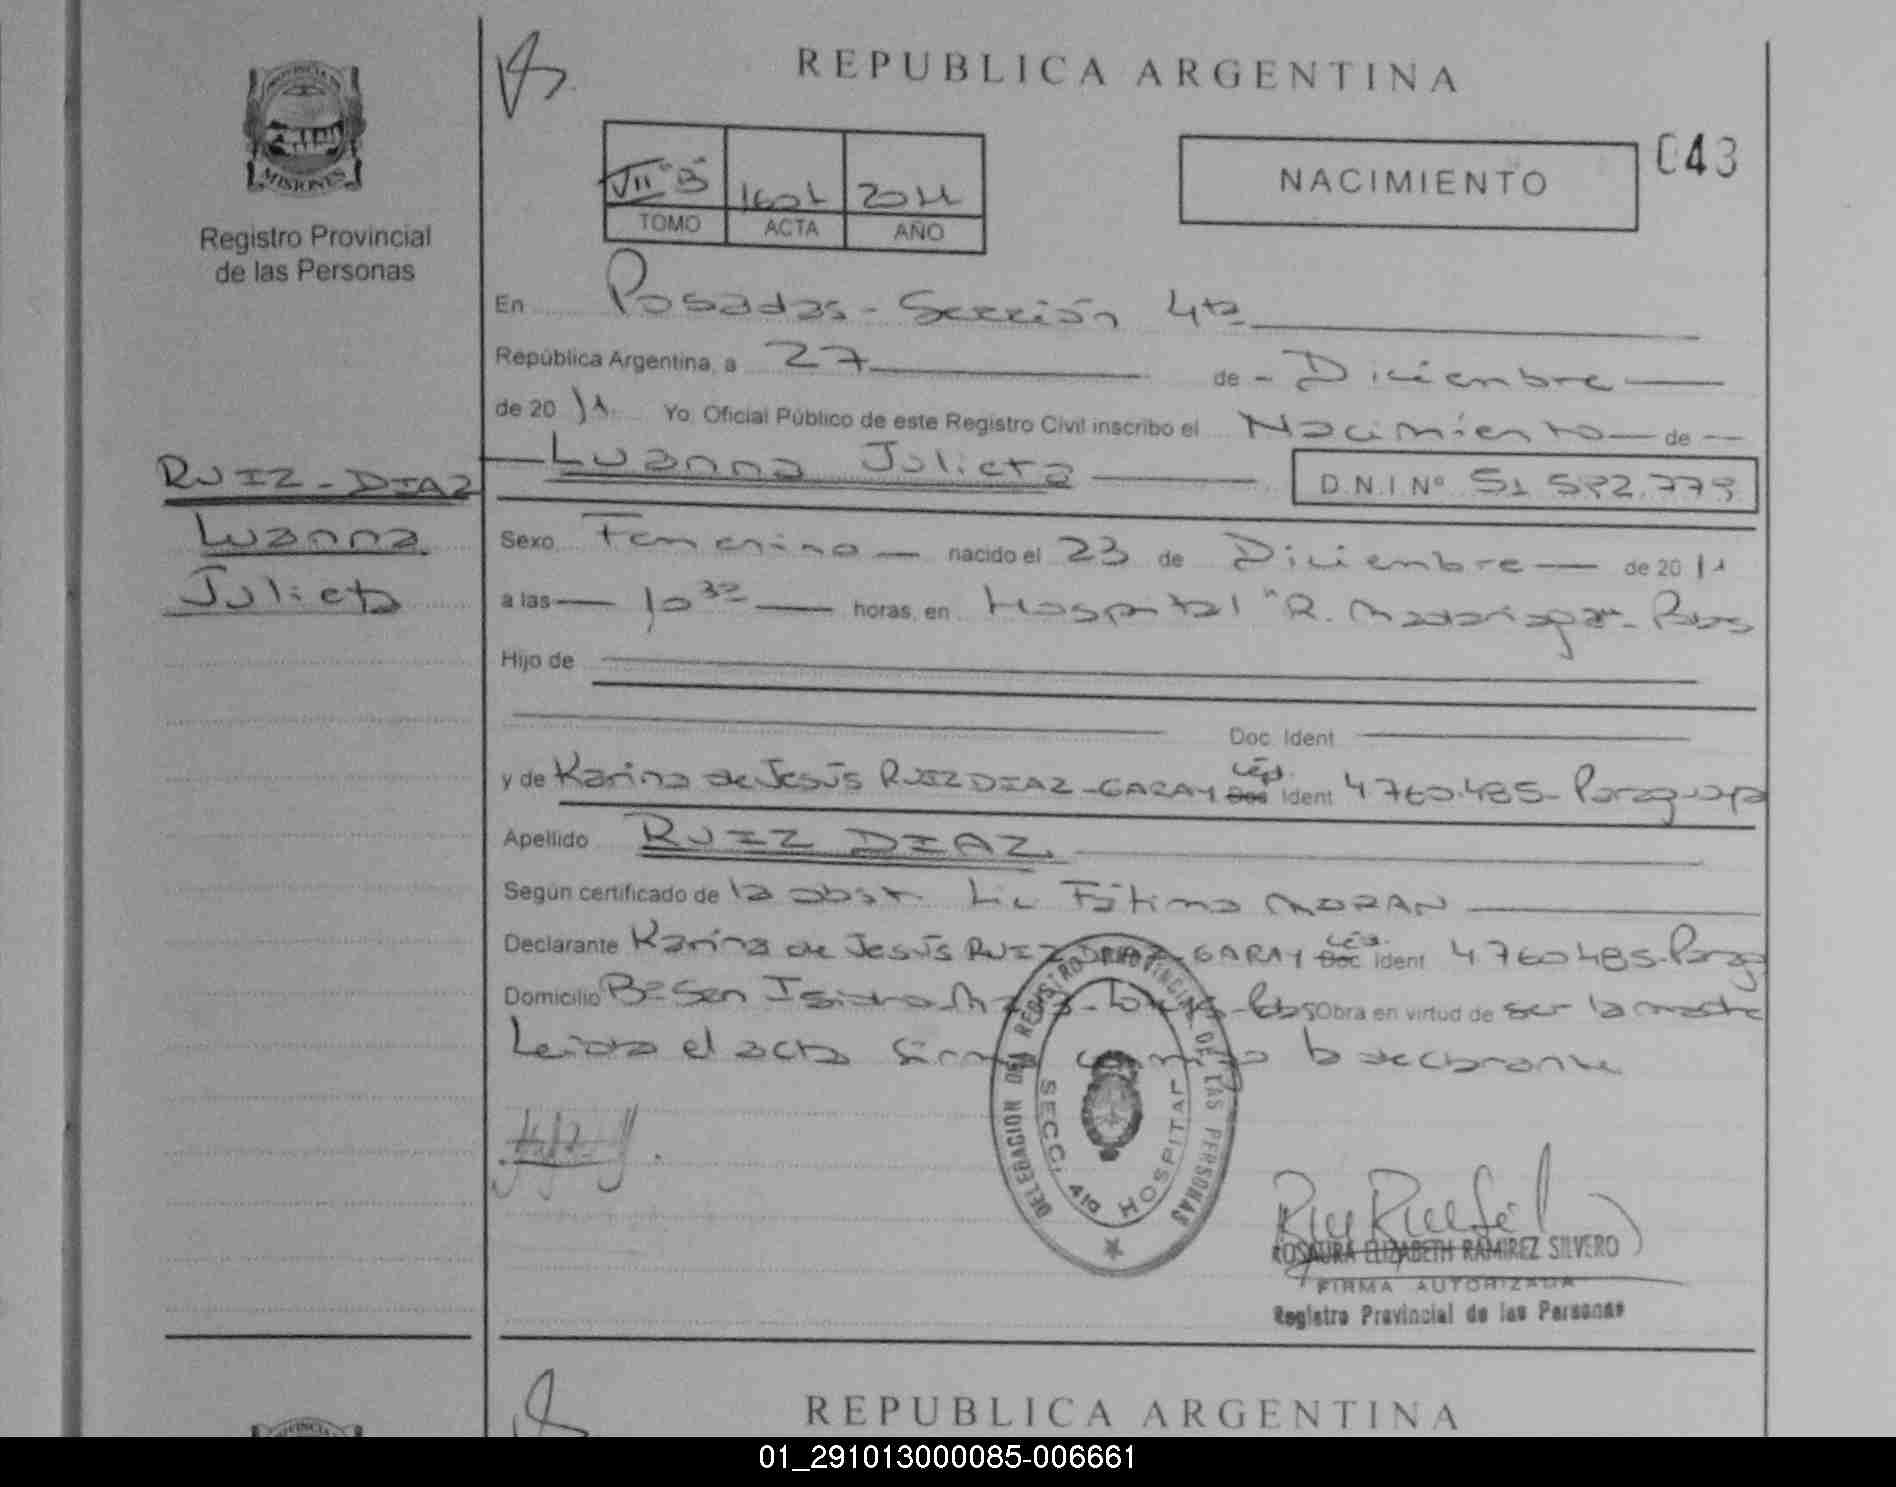 REPUBLICA ARGENTINA
PROVINCIA DE
MISIONES
Registro Provincial
de las Personas
VII "B" 1601 2011
TOMO ACTA AÑO
NACIMIENTO
043
En Posadas - Sección 4ta
República Argentina, a 27 de - Diciembre
de 20 11. Yo, Oficial Público de este Registro Civil inscribo el Nacimiento de
Luanna Julieta D.N.I Nº 51.592.779
RUIZ-DIAZ
Luanna
Julieta
Sexo Femenino nacido el 23 de Diciembre de 20 11
a las 10 32 horas, en Hospital "R. Madariaga" - Pdas
Hijo de
Doc. Ident.
y de Karina de Jesús RUIZ DIAZ - GARAY Céd. Doc Ident 4760.485 - Paraguaya
Apellido RUIZ DIAZ.
Según certificado de la obst. Lic Fátima MORAN
Declarante Karina de Jesús RUIZ DIAZ - GARAY Céd. Doc Ident 4760485 - Parag
Domicilio Bº San Isidro Obra en virtud de ser la madre
Leída el acta firma conmigo la declarante
DELEGACION DEL REGISTRO PROVINCIAL DE LAS PERSONAS
SECC. 4ta HOSPITAL
ROSAURA ELIZABETH RAMIREZ SILVERO
FIRMA AUTORIZADA
Registro Provincial de las Personas
REPUBLICA ARGENTINA
01_291013000085-006661